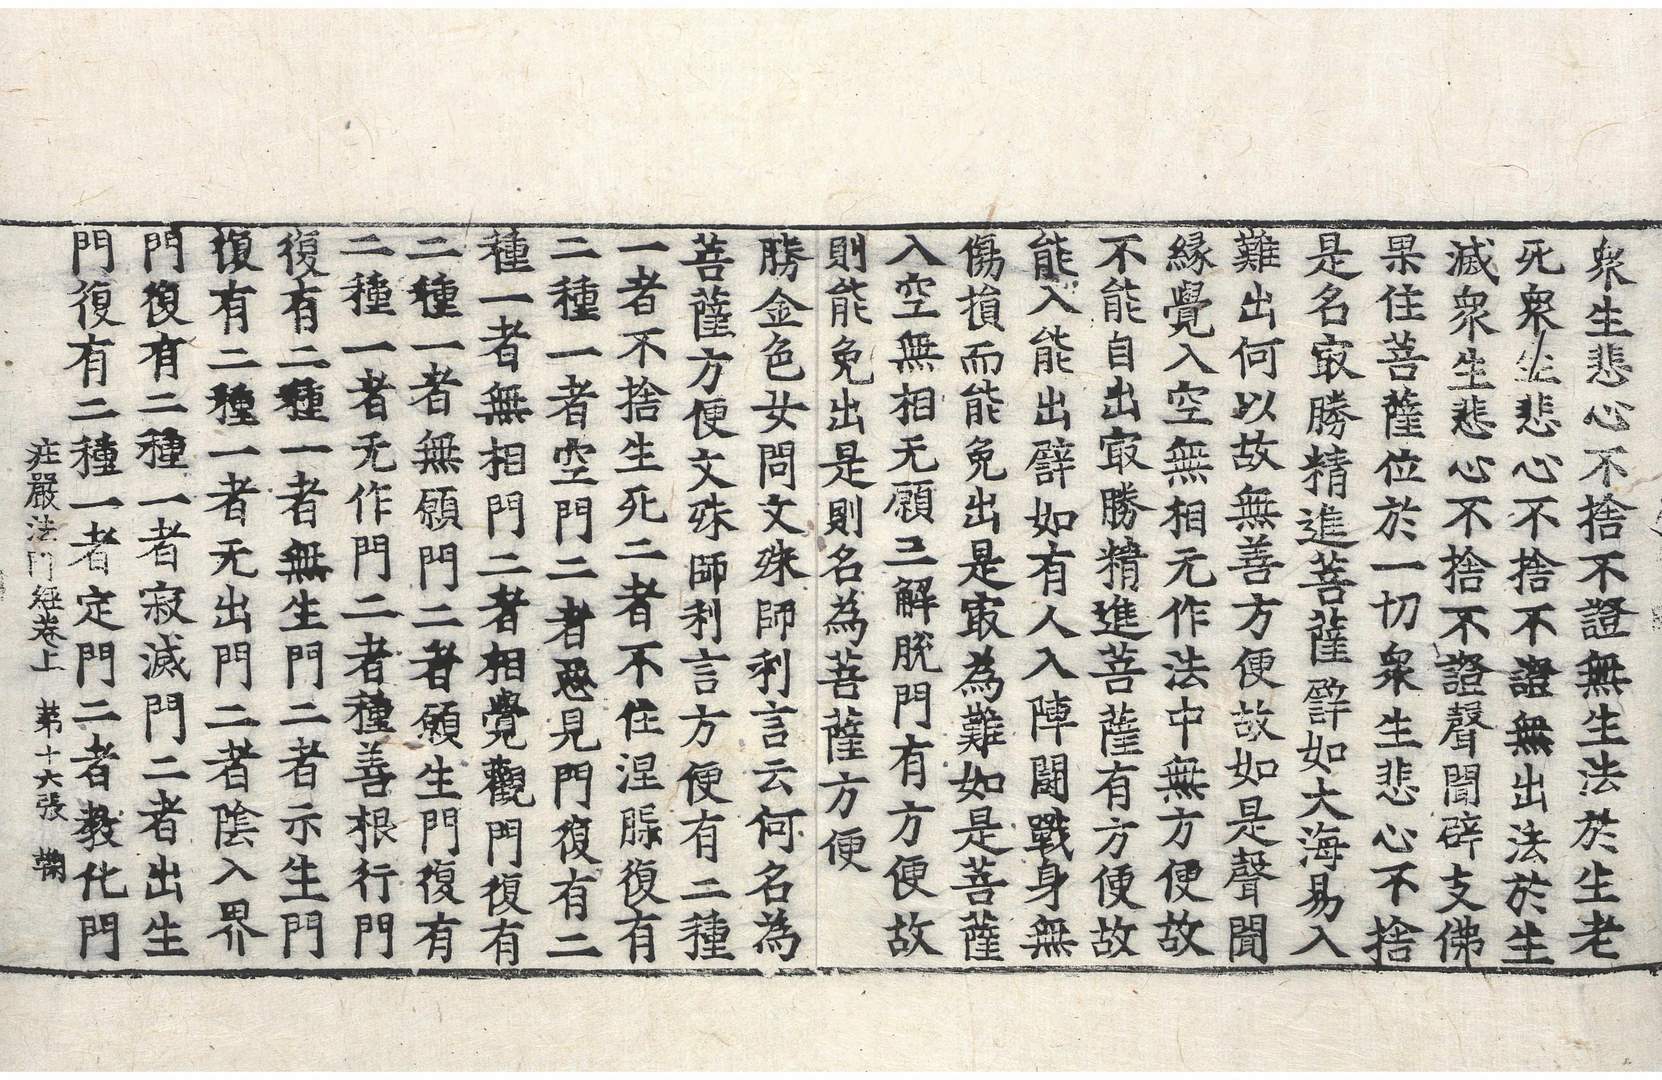 衆生悲心不捨不證無生法於生老
死衆生悲心不捨不證無出法於生
滅衆生悲心不捨不證聲聞辟支佛
果住菩薩位於一切衆生悲心不捨
是名㝡勝精進菩薩譬如大海易入
難出何以故無善方便故如是聲聞
縁覺入空無相无作法中無方便故
不能自出㝡勝精進菩薩有方便故
能入能出譬如有人入陣鬪戰身無
傷損而能免出是㝡為難如是菩薩
入空無相无願三解脫門有方便故
則能免出是則名為菩薩方便
勝金色女問文殊師利言云何名為
菩薩方便文殊師利言方便有二種
一者不捨生死二者不住涅槃復有
二種一者空門二者惡見門復有二
種一者無相門二者相覺觀門復有
二種一者無願門二者願生門復有
二種一者无作門二者種善根行門
復有二種一者無生門二者示生門
復有二種一者无出門二者陰入界
門復有二種一者寂滅門二者出生
門復有二種一者定門二者教化門
庄嚴法門經卷上 苐十六張 鞠